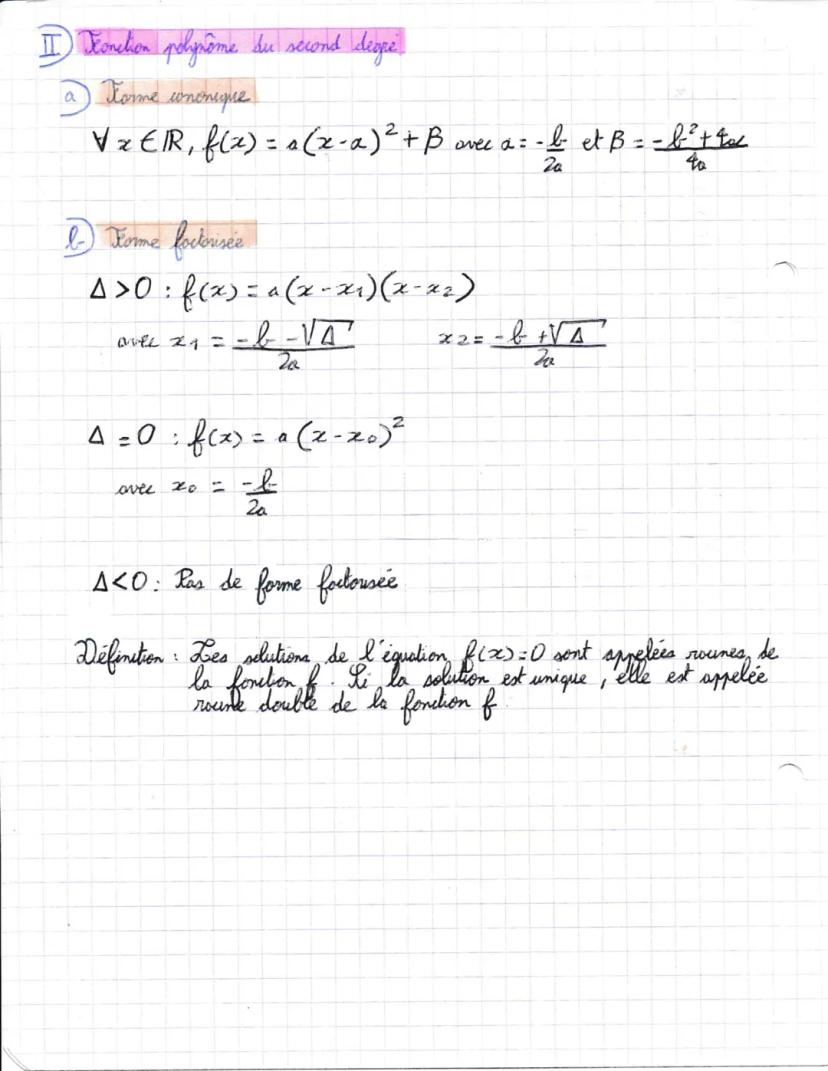 II) Fonction polynôme du second degré
a) Forme canonique
∀ x ∈ ℝ, f(x) = a(x-α)² + β avec α = -b/2a et β = (-b²+4ac)/4a
b) Forme factorisée
Δ > 0 : f(x) = a(x-x₁)(x-x₂)
avec x₁ = (-b-√Δ)/2a x₂ = (-b+√Δ)/2a
Δ = 0 : f(x) = a(x-x₀)²
avec x₀ = -b/2a
Δ < 0 : Pas de forme factorisée
Définition : Les solutions de l'équation f(x)=0 sont appelées racines de
la fonction f. Si la solution est unique, elle est appelée
racine double de la fonction f